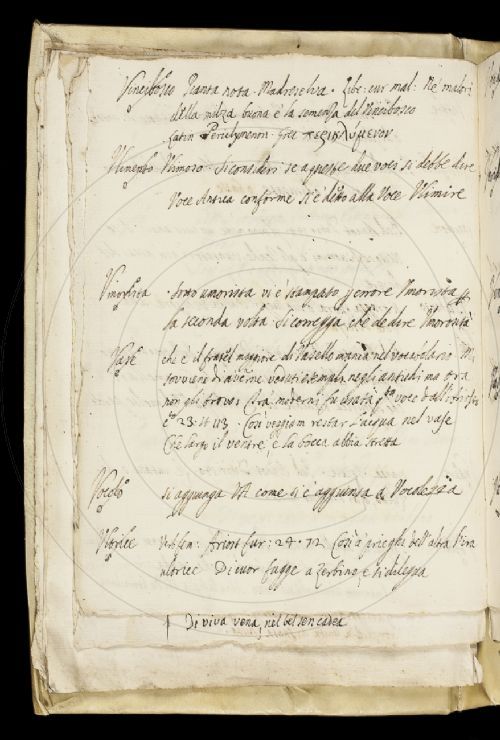 Vincibosco Pianta nota. Madreselva. Libr: cur mal: Ne' malori
della milza buona è la semenza del Vincibosco
Latin. Periclymenon. Grec περικλύμενον
Umento Umoro Si consideri se a queste due voci si debbe dire
Voce Antica conforme si è detto alla Voce Umire
Umorista sotto umorista vi è stampato per errore Umorista
la seconda volta si corregga che de dire Umorista
Vaso che è il fratel maggiore di Vasello manca nel vocabolario
sovviene di averne veduti esempli negli antichi ma ora
non gli trovo. Tra moderni fu usata voce dall'Ariosto
23. st 113. Così veggiam restar l'acqua nel vase
Che largo il ventre, e la bocca abbia stretta
si aggiunga VA come si è aggiunta a
Ultrice Verb. fem. Ariost. fur: 24. 72. Così a' prieghi dell'altra l'ira
ultrice Di cuor fugge a Zerbino, e si dilegua
Di viva vena, nel bel sen cadea